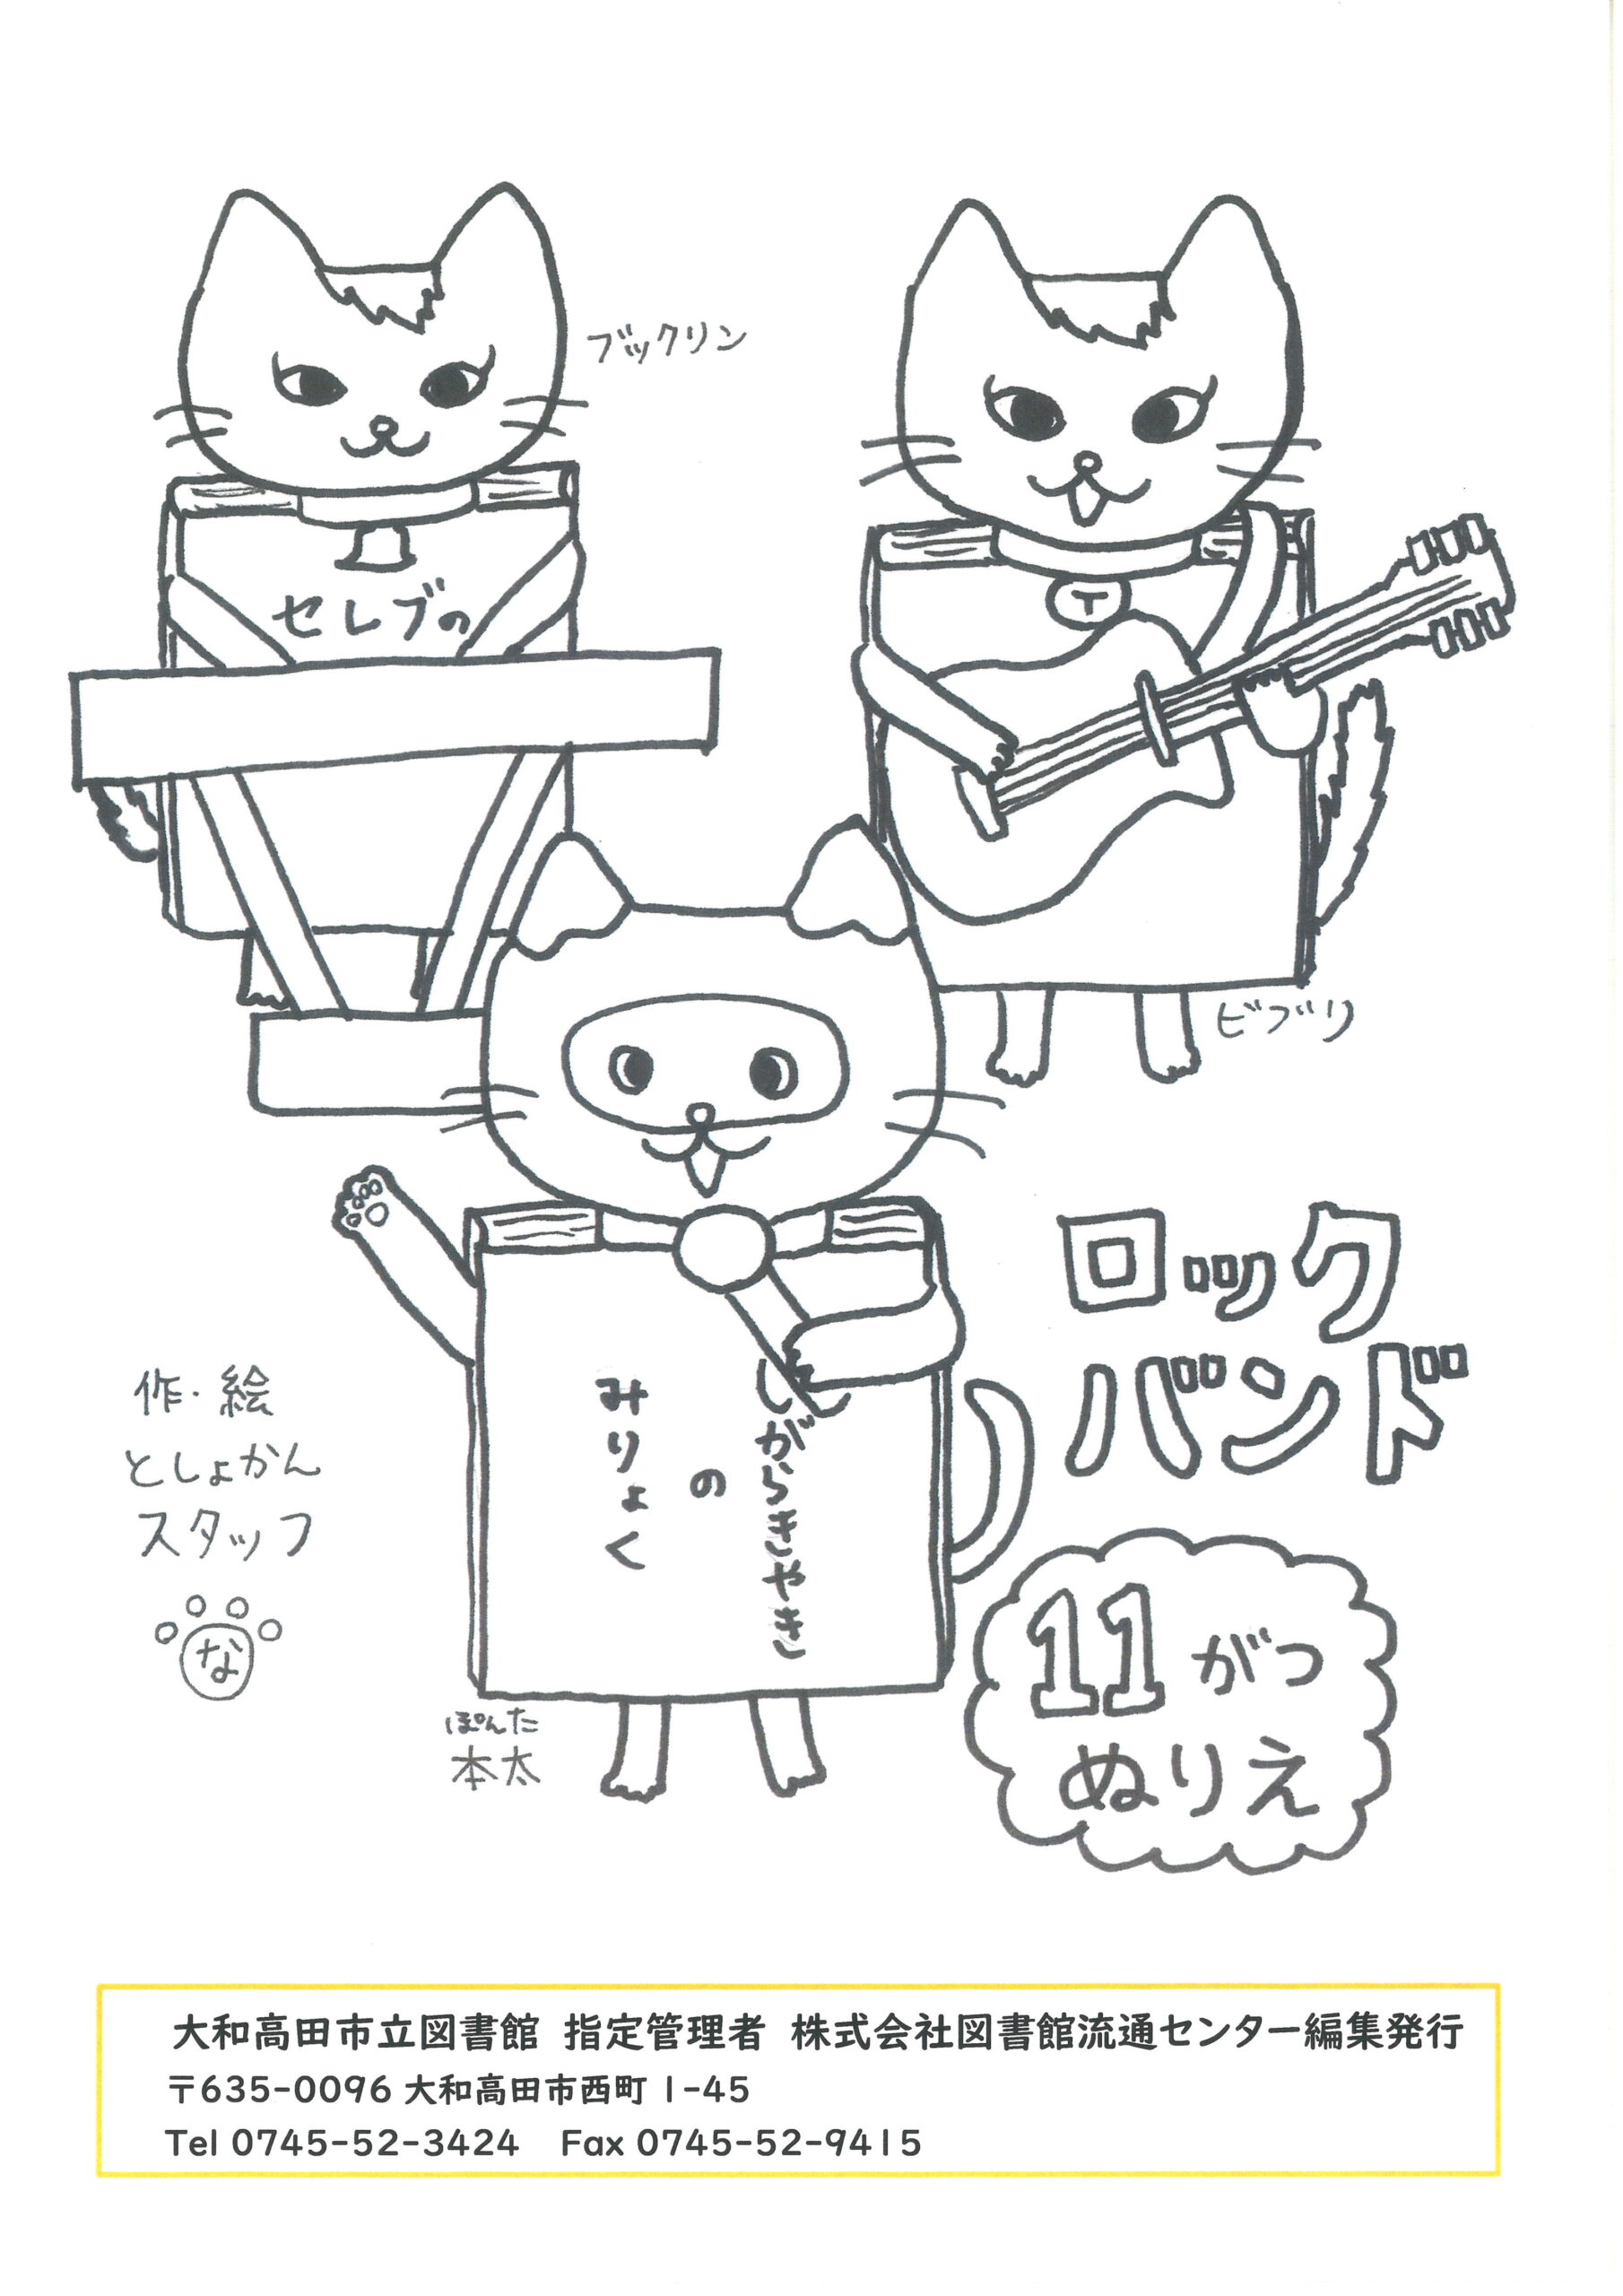 ブックリン
セレブの
T
ビブリ
ロック
バンド
しがらきやき
の
みりょく
作・絵
としょかん
スタッフ
な
ぽんた
本太
11がつ
ぬりえ
大和高田市立図書館 指定管理者 株式会社図書館流通センター編集発行
〒635-0096 大和高田市西町 1-45
Tel 0745-52-3424 Fax 0745-52-9415